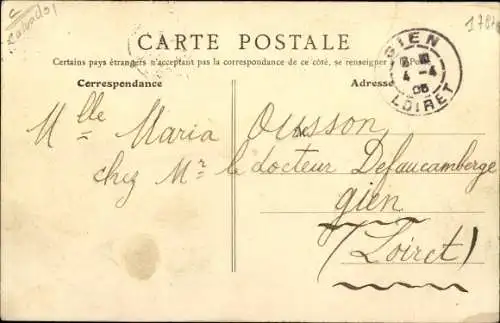 Calvados
1787
CARTE POSTALE
Certains pays étrangers n'acceptant pas la correspondance de ce côté, se renseigner Poste
Correspondance
Adresse
GIEN
4 - 4
06
LOIRET
Mlle Maria Ousson
chez Mr le docteur Defaucamberge
gien
(Loiret)